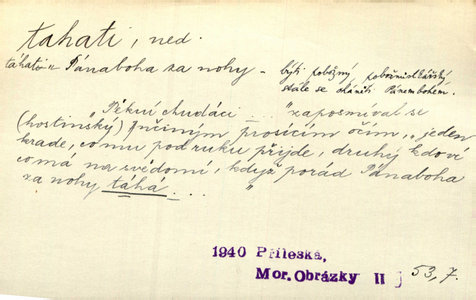 tahati, ned.
táhati Pánaboha za nohy - býti pobožný pobožnůstkářský
stále se oháněti Pánembohem.
"Pěkní chudáci . . . " zaposmíval se
(hostinský) Ynčiným prosícím očím, „jeden
krade, co mu pod ruku přijde, druhý kdoví
co má na svědomí, když pořád Pánaboha
za nohy táhá . . . "
1940 Přileská,
Mor. Obrázky II 53, 7.